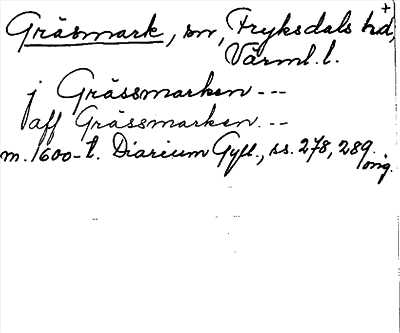 Gräsmark, sn, Fryksdals hd, +
Värml. l.
j Grässmarken ---
aff Grässmarken. ---
m. 1600-t. Diarium Gyll., ss. 278, 289.
orig.